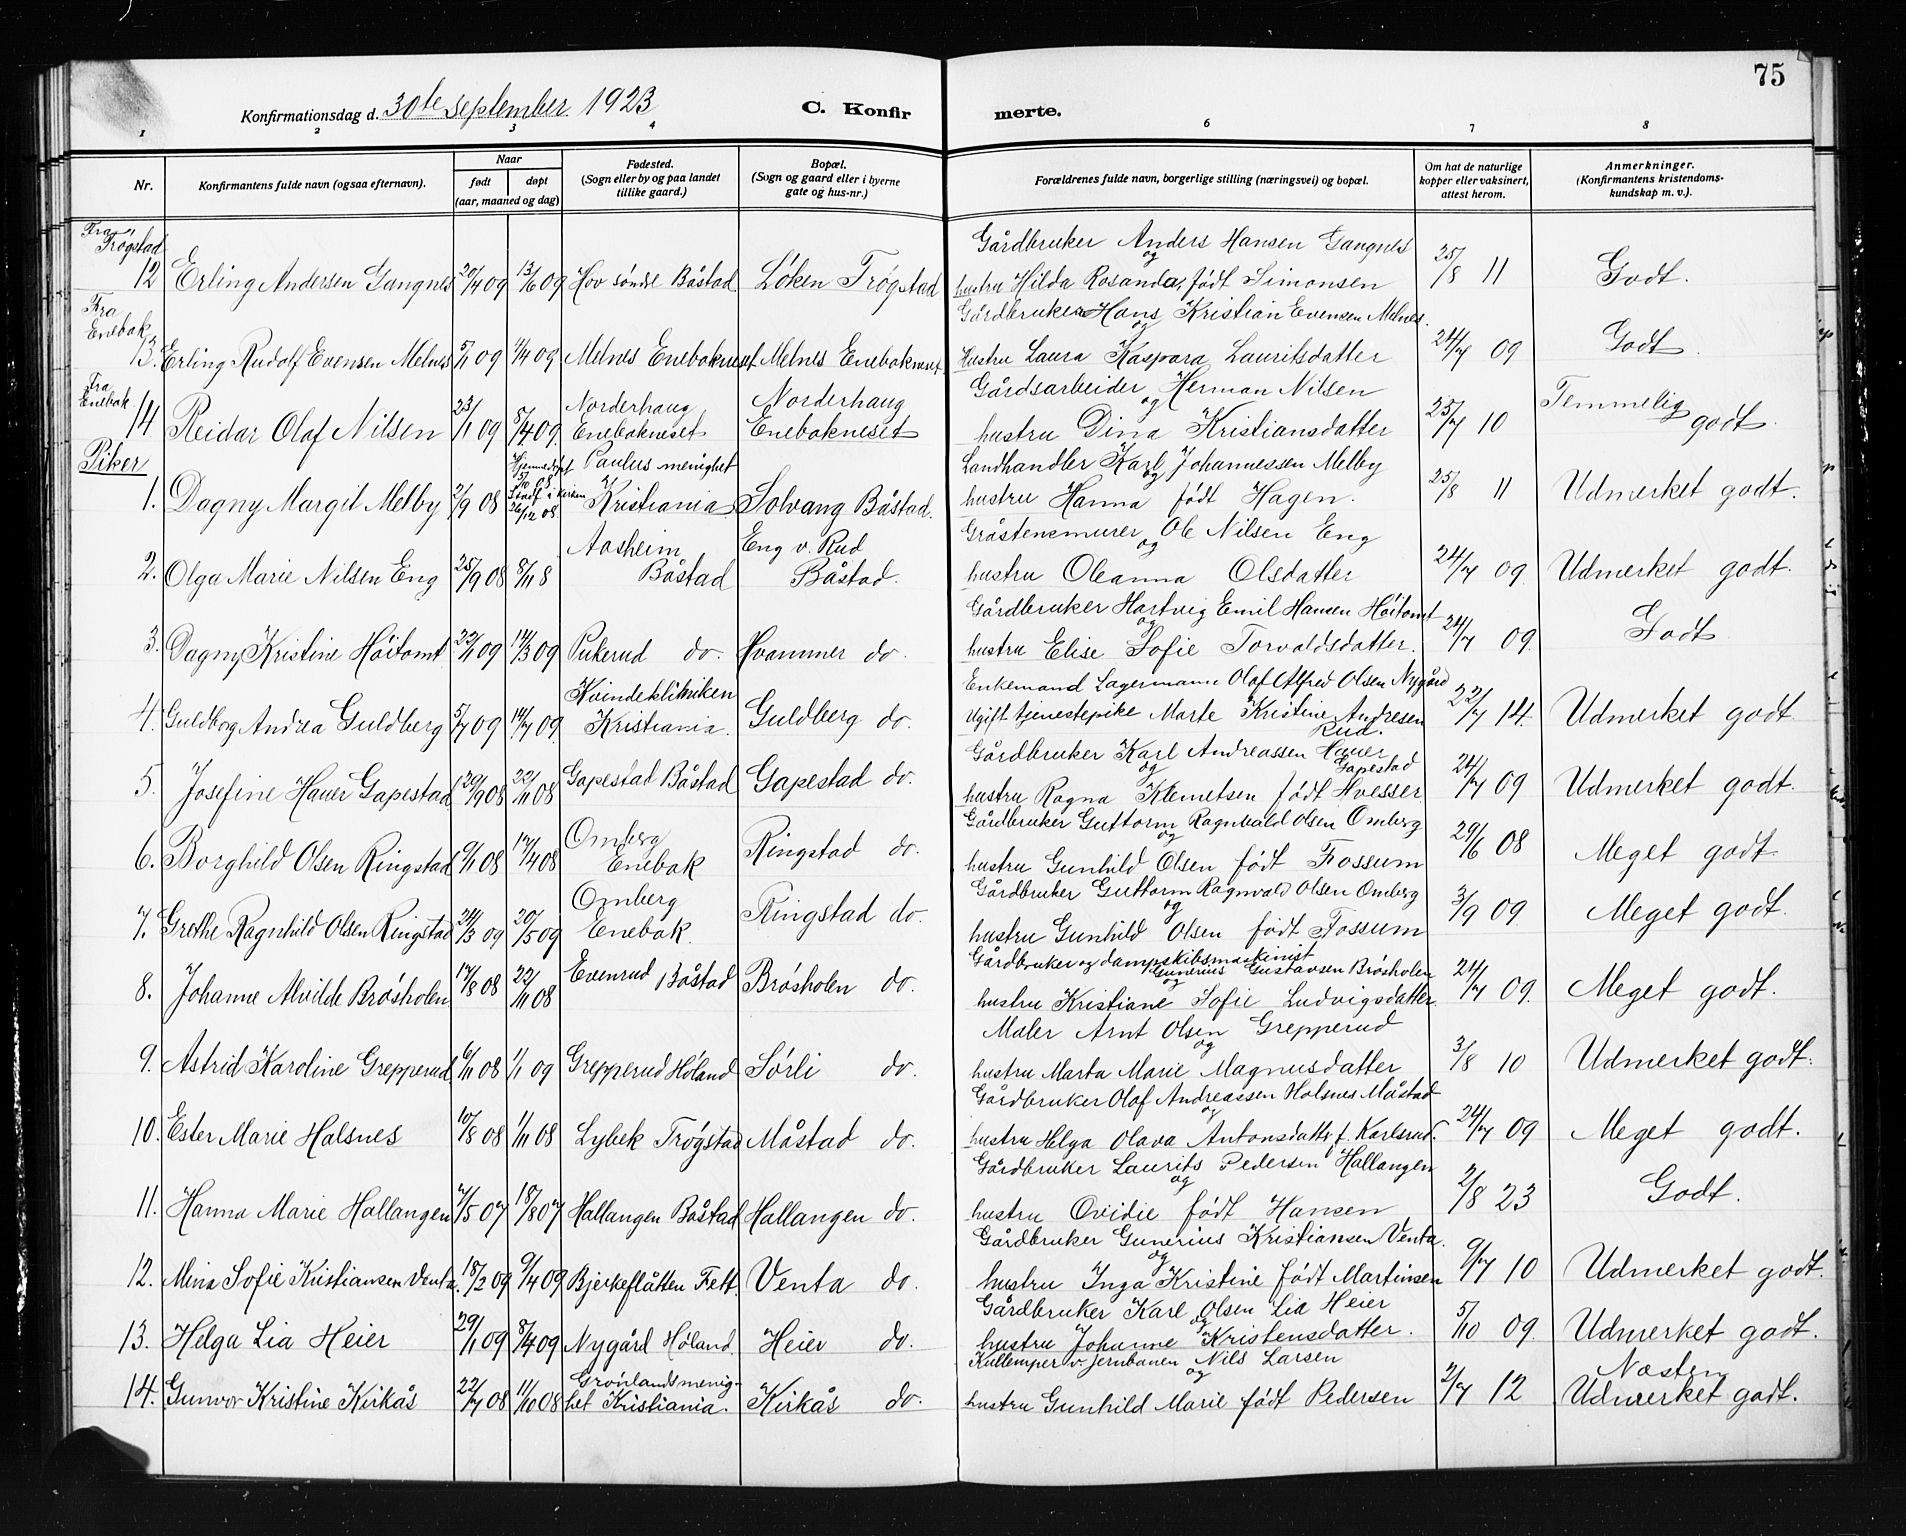 75
Konfirmationsdag d. 30te september 1923
C. Konfirmerte.
1 2 3 4 6 7 8
Nr. | Konfirmantens fulde navn (ogsaa efternavn). | Naar født døpt (aar, maaned og dag) | Fødested. (Sogn eller by og paa landet tillike gaard.) | Bopæl. (Sogn og gaard eller i byerne gate og hus-nr.) | Forældrenes fulde navn, borgerlige stilling (næringsvei) og bopæl. | Om hat de naturlige kopper eller vaksinert, attest herom. | Anmerkninger. (Konfirmantens kristendoms-kundskap m. v.)
Fra Trøgstad 12 | Erling Andersen Gangnes | 20/4 09 | 13/6 09 | Hov søndre Båstad | Løken Trøgstad | Gårdbruker Anders Hansen Gangnes og hustru Hilda Rosanda, født Simonsen | 25/8 11 | Godt.
Fra Enebak 13. | Erling Rudolf Evensen Melnes | 5/1 09 | 4/4 09 | Melnes Enebakneset | Melnes Enebakneset | Gårdbruker Hans Kristian Evensen Melnes og Hustru Laura Kaspara Lauritsdatter | 24/7 09 | Godt.
Fra Enebak 14 | Reidar Olaf Nilsen | 23/1 09 | 8/4 09 | Norderhaug Enebakneset | Norderhaug Enebakneset | Gårdsarbeider Herman Nilsen og hustru Dina Kristiansdatter | 25/7 10 | Temmelig godt.
Piker
1. | Dagny Margit Melby | 2/9 08 | Hjemmedøpt 5/10 08 Stadf. i kirken 26/12 08 | Paulus menighet Kristiania | Solvang Båstad. | Landhandler Karl Johannessen Melby og hustru Hanna født Hagen. | 25/8 11 | Udmerket godt.
2. | Olga Marie Nilsen Eng | 25/9 08 | 8/11 8 | Aasheim Båstad | Eng v. Rud Båstad. | Gråstensmurer Ole Nilsen Eng og hustru Oleanna Olsdatter | 24/7 09 | Udmerket godt.
3. | Dagny Kristine Höitomt | 22/1 09 | 14/3 09 | Pukerud do. | Hvammer do. | Gårdbruker Hartvig Emil Hansen Höitomt og hustru Elise Sofie Torvaldsdatter. | 24/7 09. | Godt
4. | Guldborg Andrea Guldberg | 5/7 09 | 14/7 09. | Kvindeklinikken Kristiania. | Guldberg do. | Enkemand Lagermann Olaf Alfred Olsen Nygård Ugift tjenestepike Marte Kristine Andresen Rud. | 22/7 14. | Udmerket godt
5. | Josefine Hauer Gapestad | 29/9 08 | 22/11 08 | Gapestad Båstad | Gapestad do. | Gårdbruker Karl Andreassen Hauer Gapestad og hustru Ragna Klemetsen født Hvesser | 24/7 09 | Udmerket godt.
6. | Borghild Olsen Ringstad | 9/1 08 | 17/4 08 | Omberg Enebak | Ringstad do. | Gårdbruker Guttorm Ragnvald Olsen Omberg og hustru Gunhild Olsen født Fossum | 29/6 08 | Meget godt
7. | Grethe Ragnhild Olsen Ringstad | 24/3 09 | 20/5 09 | Omberg Enebak. | Ringstad do. | Gårdbruker Guttorm Ragnvald Olsen Omberg og hustru Gunhild Olsen født Fossum | 3/9 09. | Meget godt.
8. | Johanne Alvilde Brøsholen | 17/8 08 | 22/11 08 | Evenrud Båstad | Brøsholen do. | Gårdbruker og dampskibsmaskinist Gunerius Gustavsen Brøsholen og hustru Kristiane Sofie Ludvigsdatter | 24/7 09. | Meget godt.
9. | Astrid Karoline Grepperud | 6/11 08 | 1/1 09 | Grepperud Høland | Sørli do. | Maler Arnt Olsen Grepperud og hustru Marta Marie Magnusdatter | 3/8 10 | Udmerket godt.
10. | Ester Marie Halsnes | 10/8 08 | 1/11 08 | Lybek Trøgstad | Måstad do. | Gårdbruker Olaf Andreassen Halsnes Måstad og hustru Helga Olava Antonsdatter f. Karlsrud. | 24/7 09 | Meget godt.
11. | Hanna Marie Hallangen | 7/5 07 | 18/8 07 | Hallangen Båstad | Hallangen do. | Gårdbruker Laurits Pedersen Hallangen og hustru Ovidie født Hansen | 2/8 23 | Godt.
12. | Mina Sofie Kristiansen Venta. | 18/2 09 | 9/4 09 | Bjerkeflåtten Fett. | Venta do. | Gårdbruker Gunerius Kristiansen Venta. og hustru Inga Kristine født Martinsen | 9/7 10 | Udmerket godt.
13. | Helga Lia Heier | 29/1 09 | 8/4 09 | Nygård Høland. | Heier do. | Gårdbruker Karl Olsen Lia Heier og hustru Johanne Kristensdatter. | 5/10 09. | Udmerket godt.
14. | Gunvor Kristine Kirkås | 22/7 08 | 11/10 08 | Grønlandsmenighet Kristiania. | Kirkås do. | Kullemper v. jernbanen Nils Larsen og hustru Gunhild Marie født Pedersen | 2/7 12 | Næsten Udmerket godt.